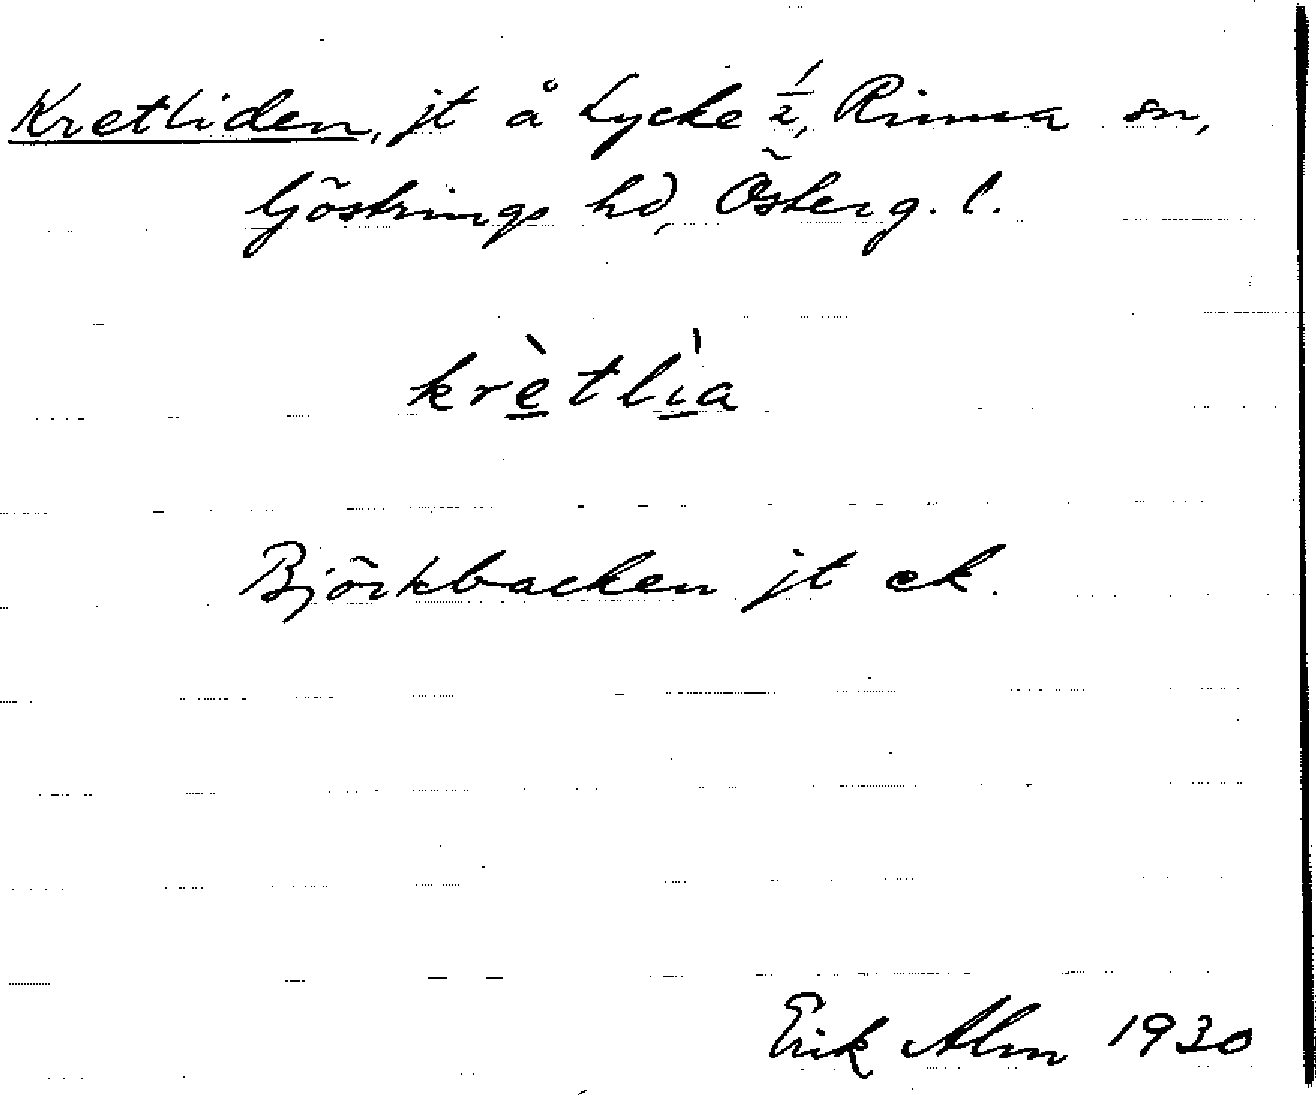 Kretliden, jt å Lycke 1/2, Rinna sn,
Göstrings hd, Österg. l.
krètlìa
Björkbacken jt ek.
Erik Alm 1930